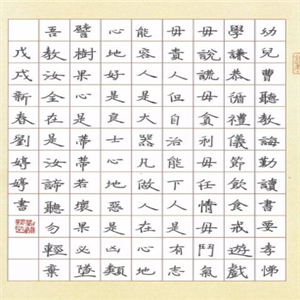 幼兒曹聽教誨勤讀書要孝悌
學謙恭循禮儀節飲食戒遊戲
毋說謊毋貪利毋任情毋鬥氣
毋責人但自治能下人是有志
能容人是大器凡做人在心地
心地好是良士心地惡是凶類
譬樹果心是蒂蒂若壞果必墜
吾教汝全在是汝諦聽勿輕棄
戊戌新春劉婷婷書